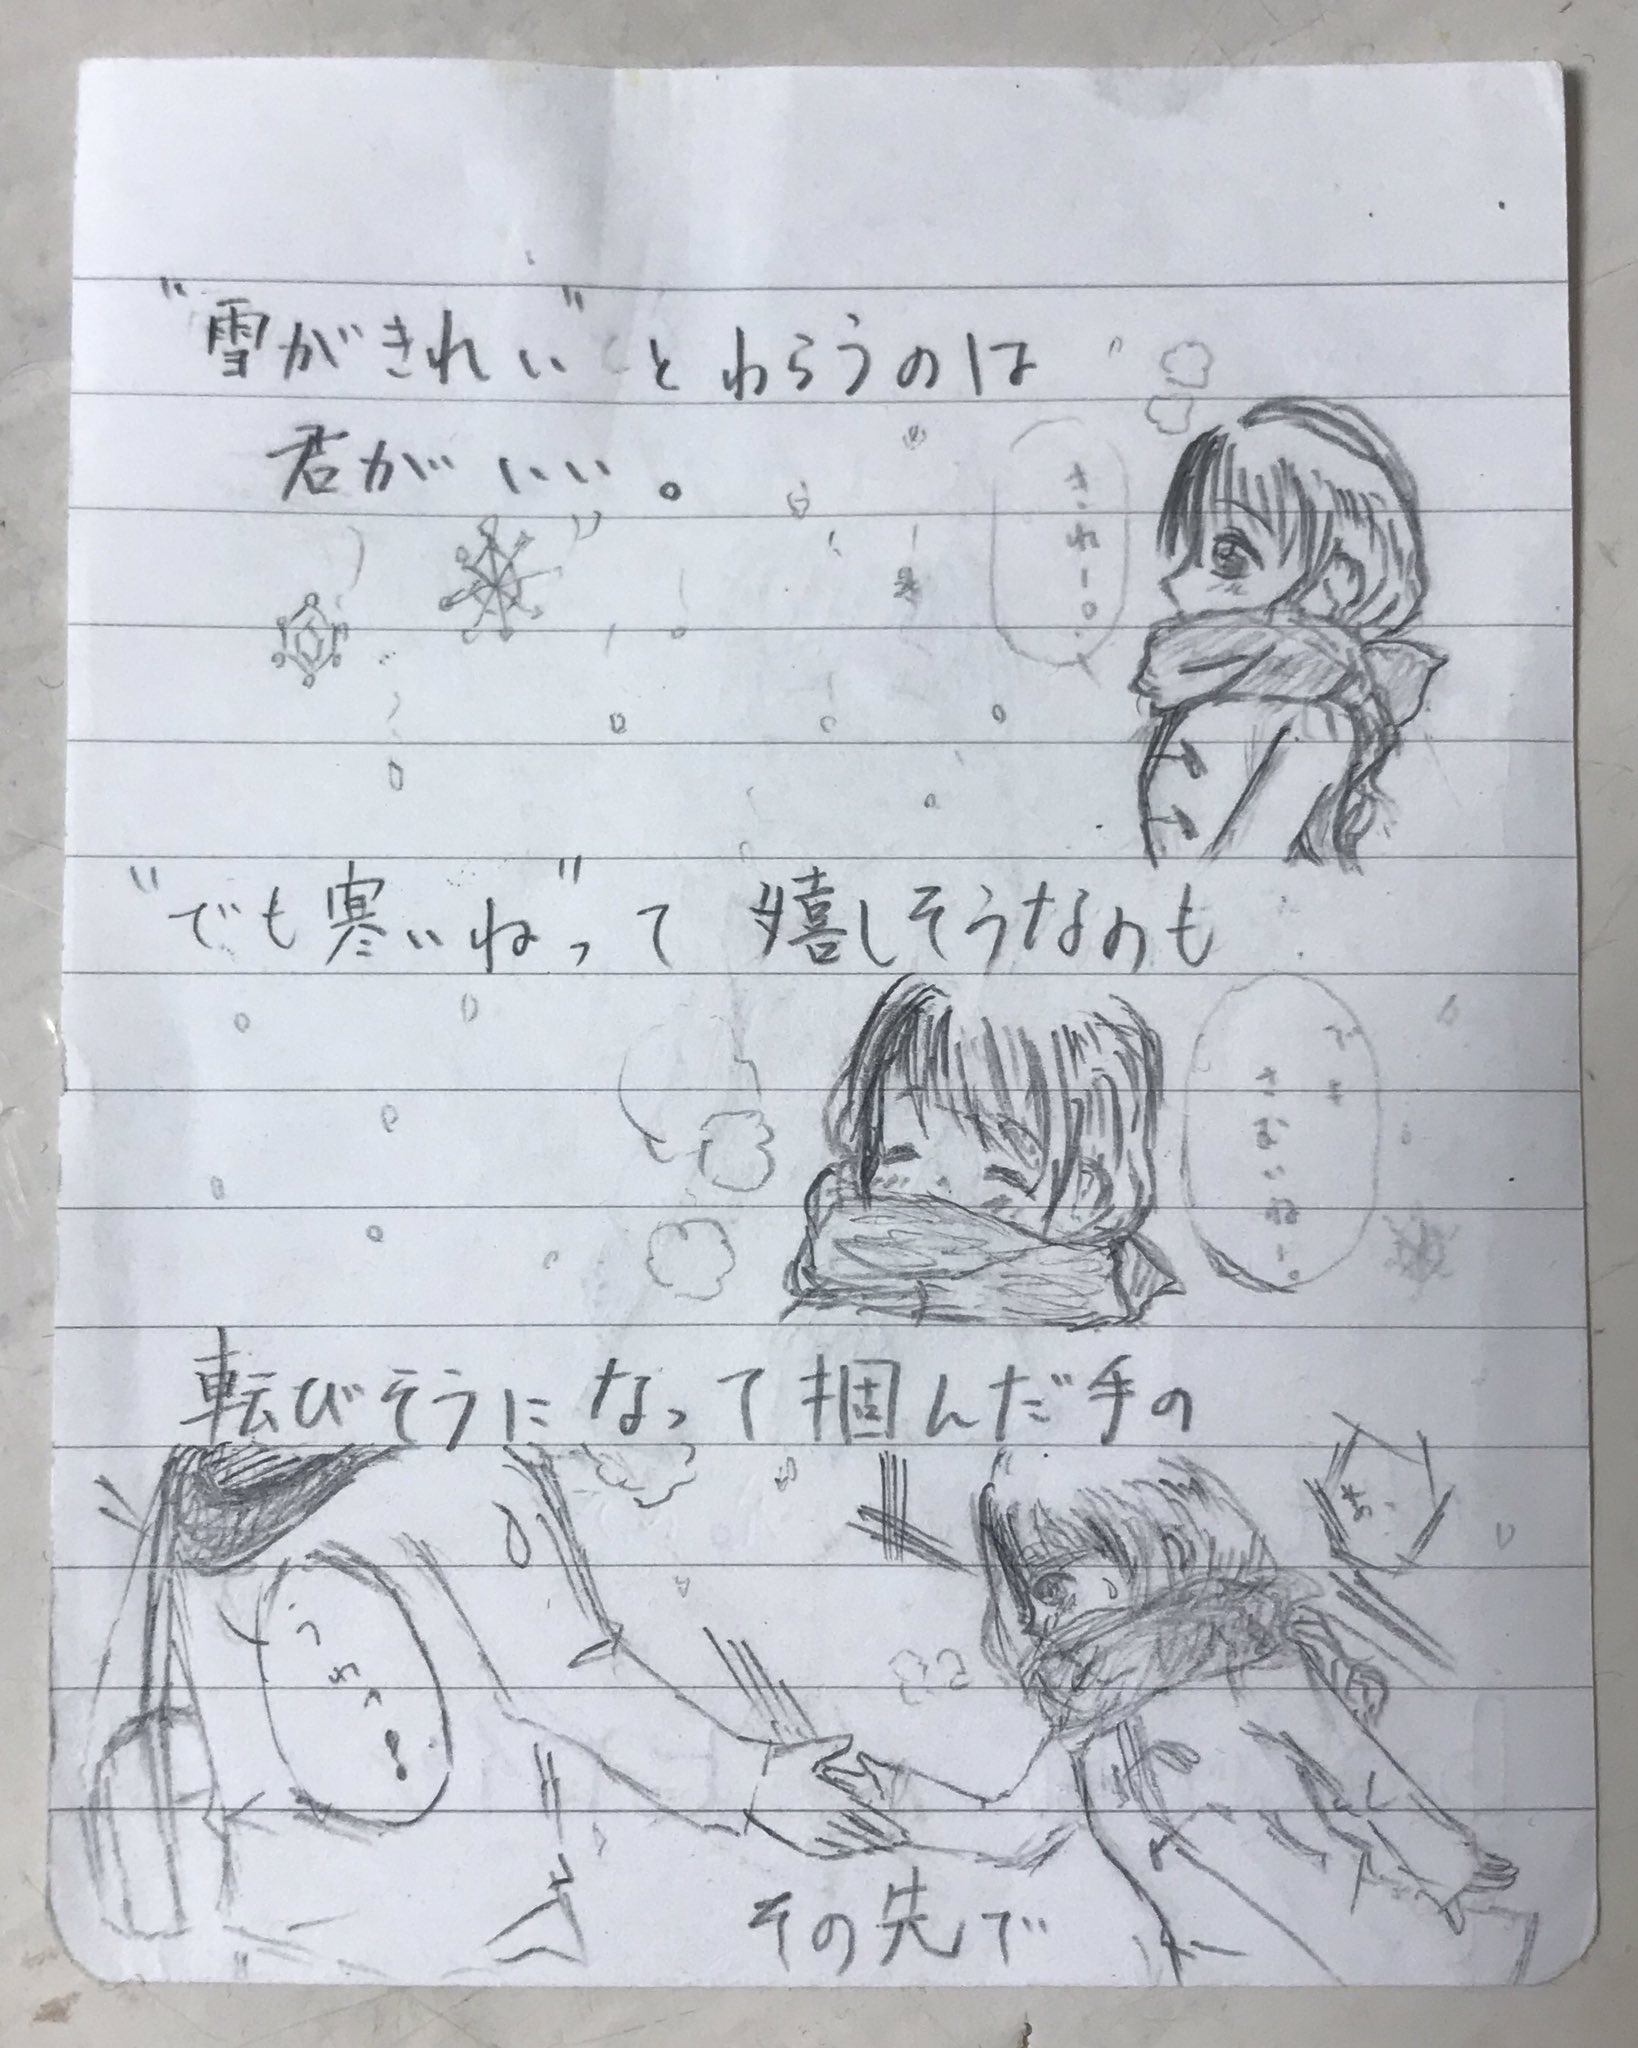 "雪がきれい"とわらうのは
君がいい。
きれー。
"でも寒いね"って嬉しそうなのも
でも
さむいねー。
転びそうになって掴んだ手の
その先で